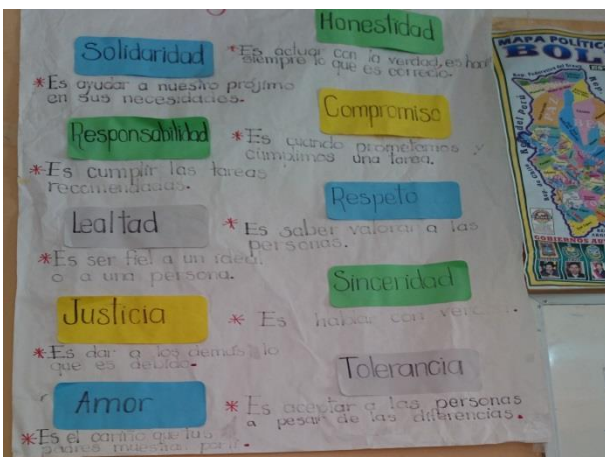 Solidaridad
*Es ayudar a nuestro prójimo
en sus necesidades.
Responsabilidad
*Es cumplir las tareas
recomendadas.
Lealtad
*Es ser fiel a un ideal
o a una persona.
Justicia
*Es dar a los demás lo
que es debido.
Amor
*Es el cariño que tus
padres muestran
Honestidad
*Es actuar con la verdad, es hacer
siempre lo que es correcto.
Compromiso
*Es cuando prometemos y
cumplimos una tarea.
Respeto
*Es saber valorar a las
personas.
Sinceridad
* Es hablar con
Tolerancia
*Es aceptar a las personas
a pesar de las diferencias.
MAPA POLÍTIC
BOL
Rep. del Perú
PAZ
GOBIERNOS AU